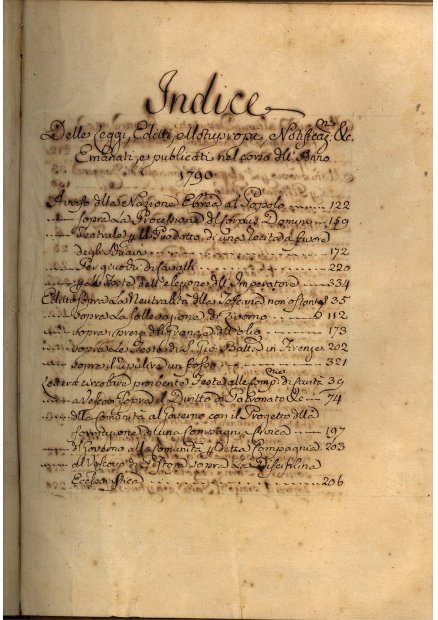 Indice
Delle Leggi, Editti, Motupropj, Notificaz.ni &c.
Emanati, e publicati nel corso dell'Anno
1790
Avviso della Nazione Ebrea al Popolo 122
sopra la Processione del Corpus Domini 159
Teatrale p il Prodotto di una recita a favore
degli 172
Per giuochi di Cavalli 220
p le Feste dell'elezione dell'Imperatore 334
Editto sopra la Neutralità della Toscana non ostante 35
sopra la sollevazione di Livorno 112
sopra i prezzi del Grano, e dell'olio 173
sopra le Feste di S. Gio. Batta in Firenze 202
sopra il un bosco 321
Lettera circolare proibente Feste alle Comp. di 39
a Vescovi sopra il Diritto di Patronato &c 74
della Comunità al Governo con il Progetto della
formazione di una Compagnia Civica 197
del Governo alla Comunità p detta Compagnia 263
al Vescovo di Pistoja sopra la Disciplina
Ecclesiastica 206